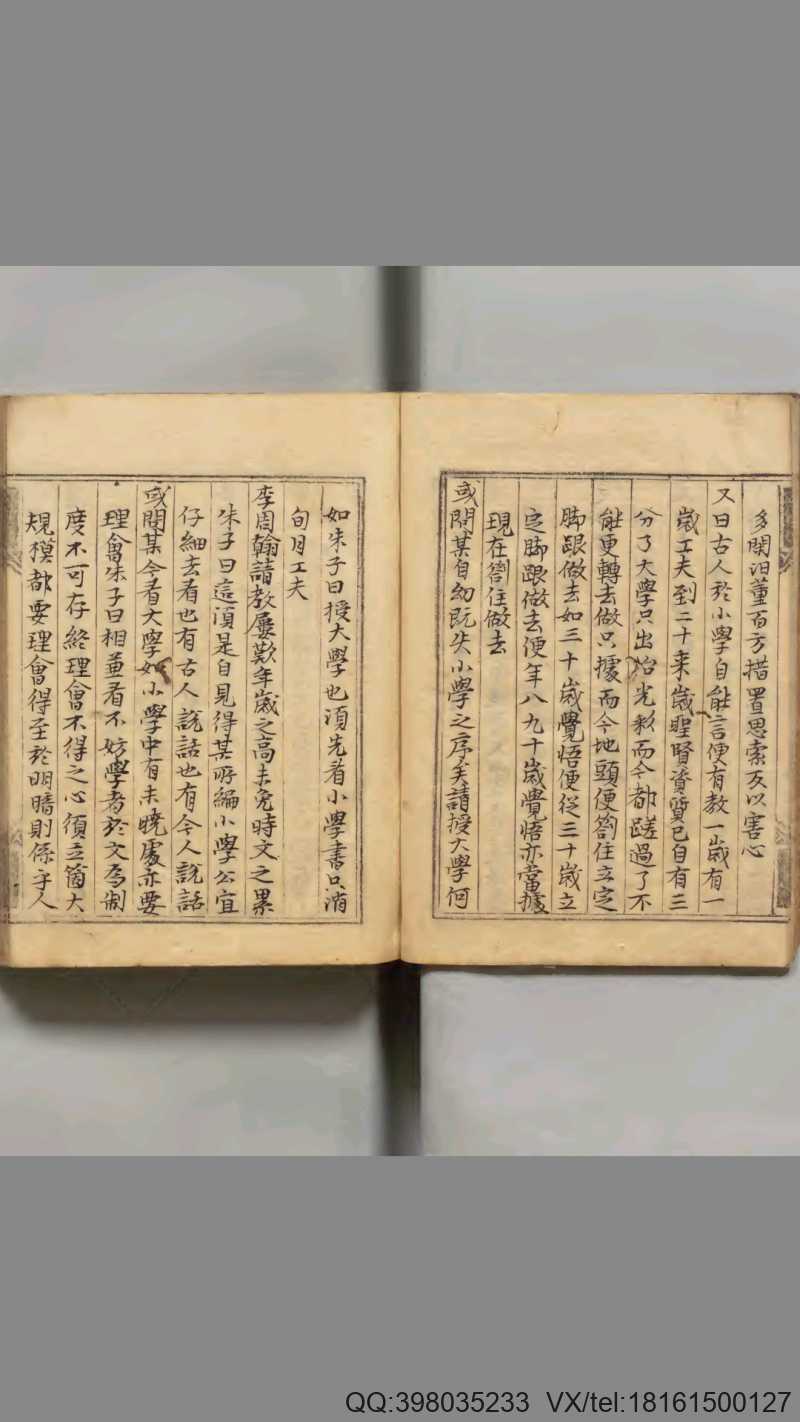 多閑汩董百方措置思索反以害心
又曰古人於小學自能言便有教一歲有一
歲工夫到二十来歲聖賢資質已自有三
分了大學只出治光彩而今都蹉過了不
能更轉去做只據而今地頭便劄住立定
脚跟做去如三十歲覺悟便從三十歲立
定脚跟做去便年八九十歲覺悟亦當據
現在劄住做去
或問某自幼既失小學之序矣請授大學何
如朱子曰授大學也須先看小學書只消
旬月工夫
李周翰請教屢歎年歲之高未免時文之累
朱子曰這須是自見得某所編小學公宜
仔細去看也有古人說話也有今人說話
或問某今看大學如小學中有未曉處亦要
理會朱子曰相並看不妨學者於文為制
度不可存終理會不得之心須立箇大
規模都要理會得至於明暗則係乎人
QQ:398035233 VX/tel:18161500127